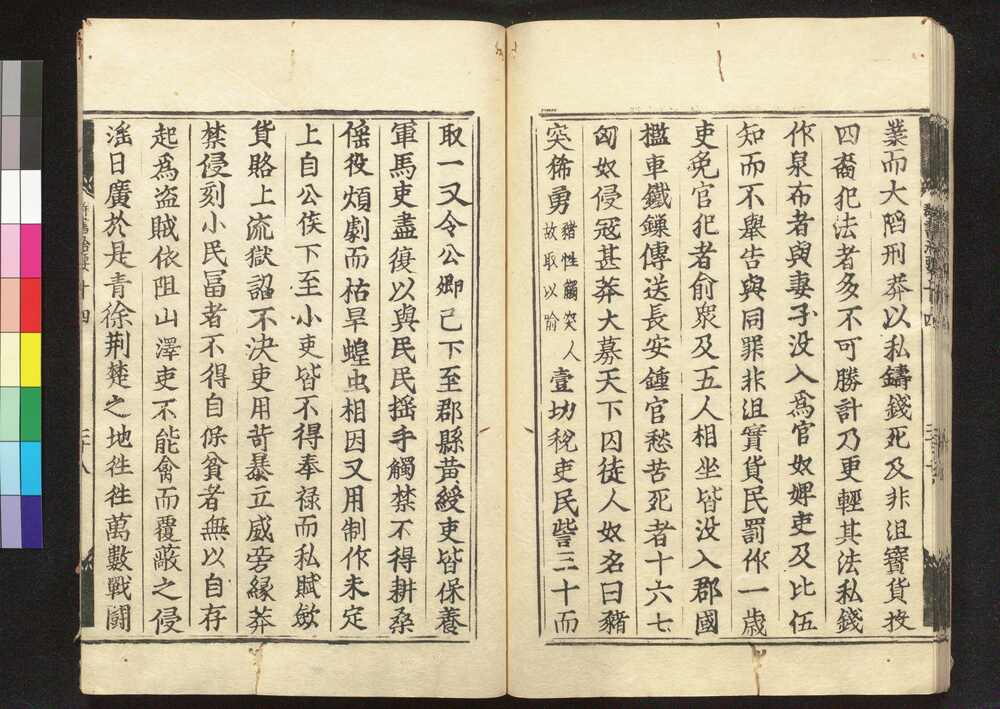 業而大陷刑莽以私鑄錢死及非沮寶貨投
四裔犯法者多不可勝計乃更輕其法私錢
作泉布者與妻子没入爲官奴婢吏及比伍
知而不舉告與同罪非沮寶貨民罰作一歳
吏免官犯者俞衆及五人相坐皆没入郡國
檻車鐵鏁傳送長安鍾官愁苦死者十六七
匈奴侵冦甚莽大募天下囚徒人奴名曰豬
突豨勇豬性觸突人故取以喻壹切稅吏民訾三十而
取一又令公卿已下至郡縣黄綬吏皆保養
軍馬吏盡復以與民民揺手觸禁不得耕桑
傜役煩劇而枯旱蝗虫相因又用制作未定
上自公侯下至小吏皆不得奉禄而私賦斂
貨賂上流獄訟不決吏用苛暴立威旁縁莽
禁侵刻小民冨者不得自保貧者無以自存
起爲盗賊依阻山澤吏不能禽而覆蔽之侵
滛日廣於是青徐荆楚之地徃徃萬數戰鬪
群書治要十四
三十八